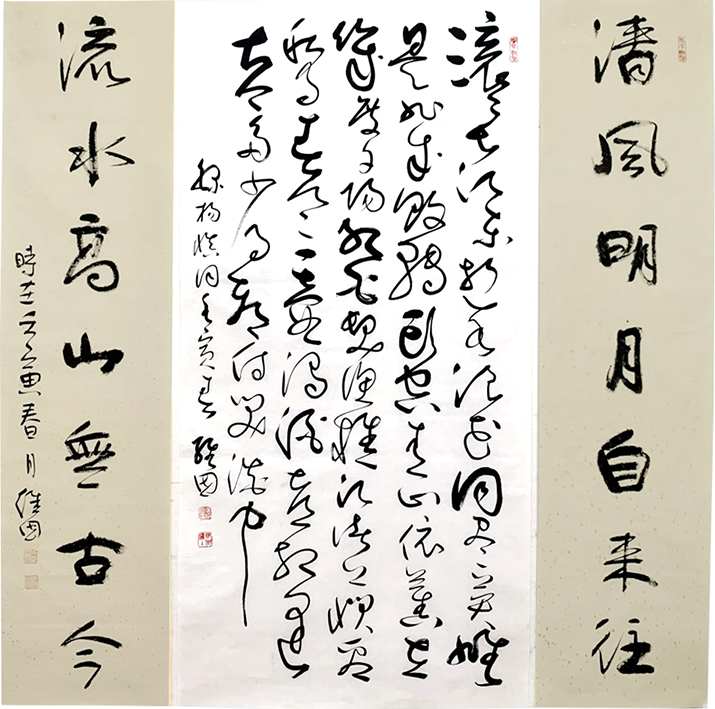 清風明月自来往
滚滚长江东逝水浪花淘尽英雄
是非成败转头空青山依旧在
几度夕阳红白发渔樵江渚上惯看
秋月春风一壶浊酒喜相逢
古今多少事都付笑谈中
录杨慎词壬寅春 维国
流水高山無古今
時在壬寅春月维国